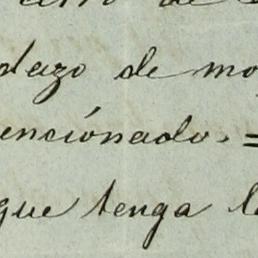 dazo de mo
encionado. =
que tenga l